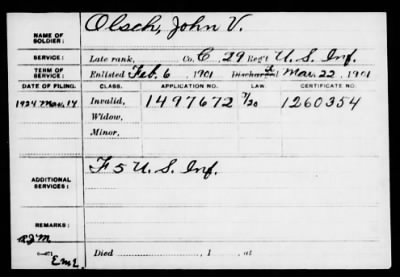 NAME OF SOLDIER: Olsch, John V.
SERVICE: Late rank, Co. C, 29 Reg't U. S. Inf.
TERM OF SERVICE: Enlisted Feb. 6, 1901 Discharged Mar. 22, 1901
DATE OF FILING. CLASS. APPLICATION NO. LAW CERTIFICATE NO.
1924 Mar. 14 Invalid, 1497672 7/20 1260354
Widow,
Minor,
ADDITIONAL SERVICES: F 5 U. S. Inf.
REMARKS:
RJM
EML Died , 1 , at